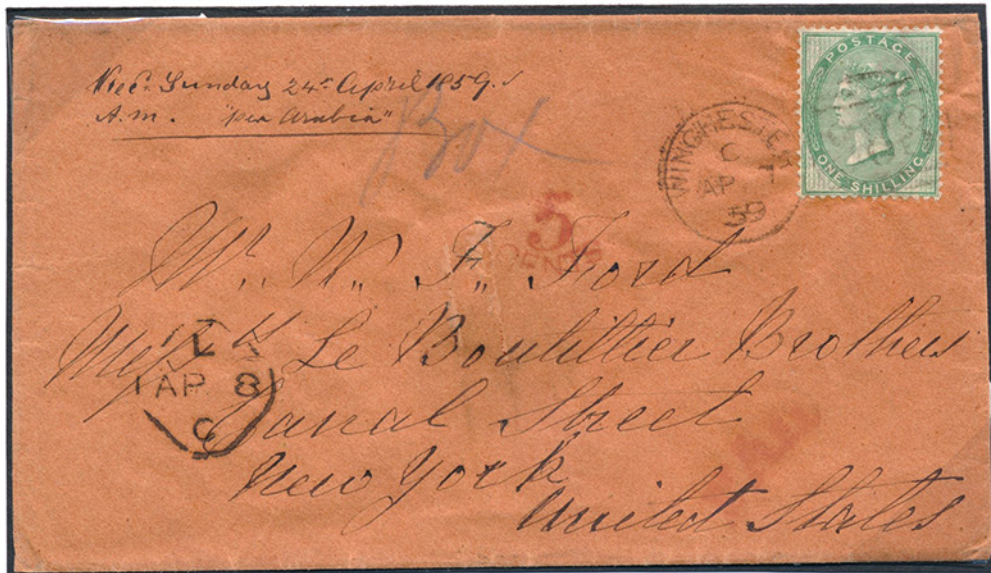 Rec'd Sunday 24th April 1859.
A.m. "per Arabia"
POSTAGE
ONE SHILLING
WINCHESTER
C
AP
59
5
CENTS
Mr. W. F. Ford
Messrs Le Boutillier Brothers
L
AP 8
C
Canal Street
New York
United States